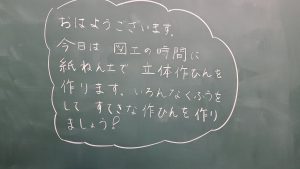 おはようございます。
今日は 図工の時間に
紙ねん土で 立体作ひんを
作ります。いろんなくふうを
して すてきな作ひんを作り
ましょう!